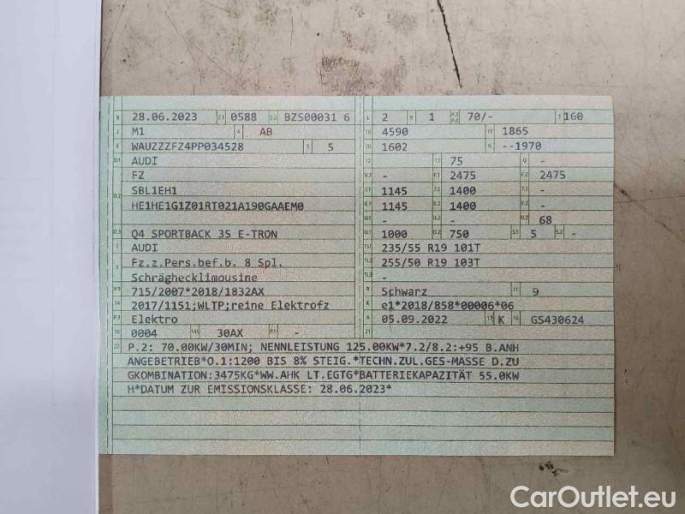 28.06.2023 0588 BZS00031 6 2 1 70/- 160
M1 AB 4590 1865
WAUZZZFZ4PP034528 5 1602 --1970
AUDI - 75 -
FZ - 2475 2475
SBL1EH1 1145 1400 -
HE1HE1G1Z01RT021A190GAAEM0 1145 1400 -
- - 68
Q4 SPORTBACK 35 E-TRON 1000 750 5 -
AUDI 235/55 R19 101T
Fz.z.Pers.bef.b. 8 Spl. 255/50 R19 103T
Schräghecklimousine -
715/2007*2018/1832AX Schwarz 9
2017/1151;WLTP;reine Elektrofz e1*2018/858*00006*06
Elektro 05.09.2022 K GS430624
0004 30AX -
P.2: 70.00KW/30MIN; NENNLEISTUNG 125.00KW*7.2/8.2:+95 B.ANH
ANGEBETRIEB*O.1:1200 BIS 8% STEIG.*TECHN.ZUL.GES-MASSE D.ZU
GKOMBINATION:3475KG*WW.AHK LT.EGTG*BATTERIEKAPAZITÄT 55.0KW
H*DATUM ZUR EMISSIONSKLASSE: 28.06.2023*
CarOutlet.eu